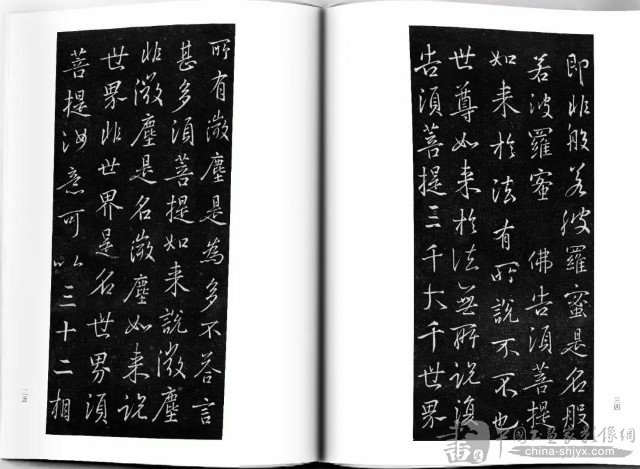 即非般若波羅蜜是名般
若波羅蜜 佛告須菩提
如来於法有所說不不也
世尊如来於法無所說復
告須菩提三千大千世界
三四
所有微塵是為多不答言
甚多須菩提如来說微塵
非微塵是名微塵如来說
世界非世界是名世界須
菩提汝意可以三十二相
三五
影像網
china-shjyx.com